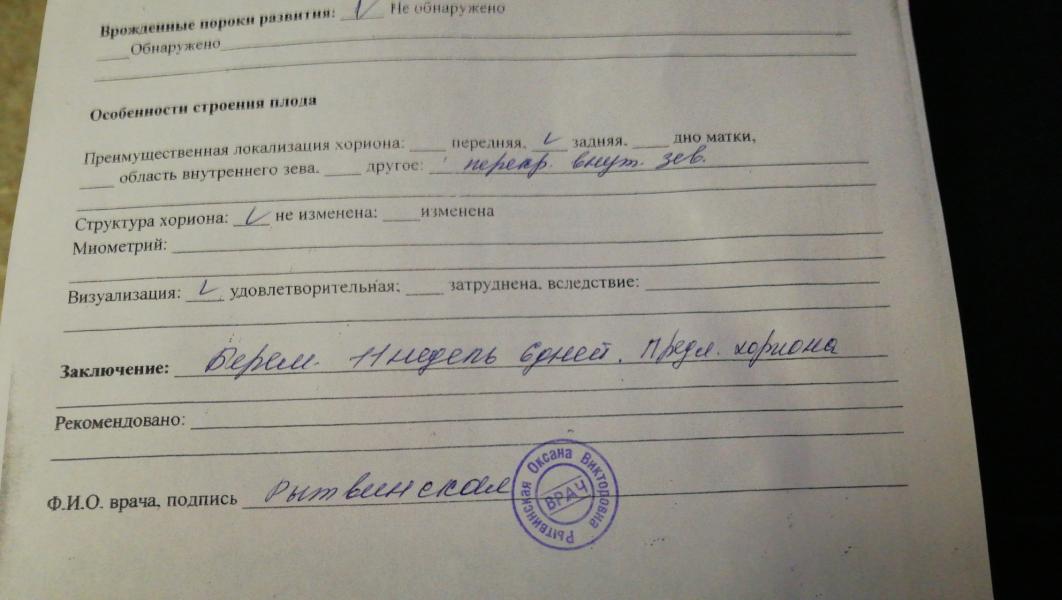 Врожденные пороки развития: ___ Не обнаружено
___ Обнаружено
Особенности строения плода
Преимущественная локализация хориона: ___ передняя, ___ задняя, ___ дно матки,
___ область внутреннего зева, ___ другое: перекр. внут. зев.
Структура хориона: ___ не изменена; ___ изменена
Миометрий:
Визуализация: ___ удовлетворительная; ___ затруднена, вследствие:
Заключение: Берем. 11 недель 6 дней. Предл. хориона
Рекомендовано:
Ф.И.О. врача, подпись Рытвинская
Рытвинская Оксана Викторовна
ВРАЧ